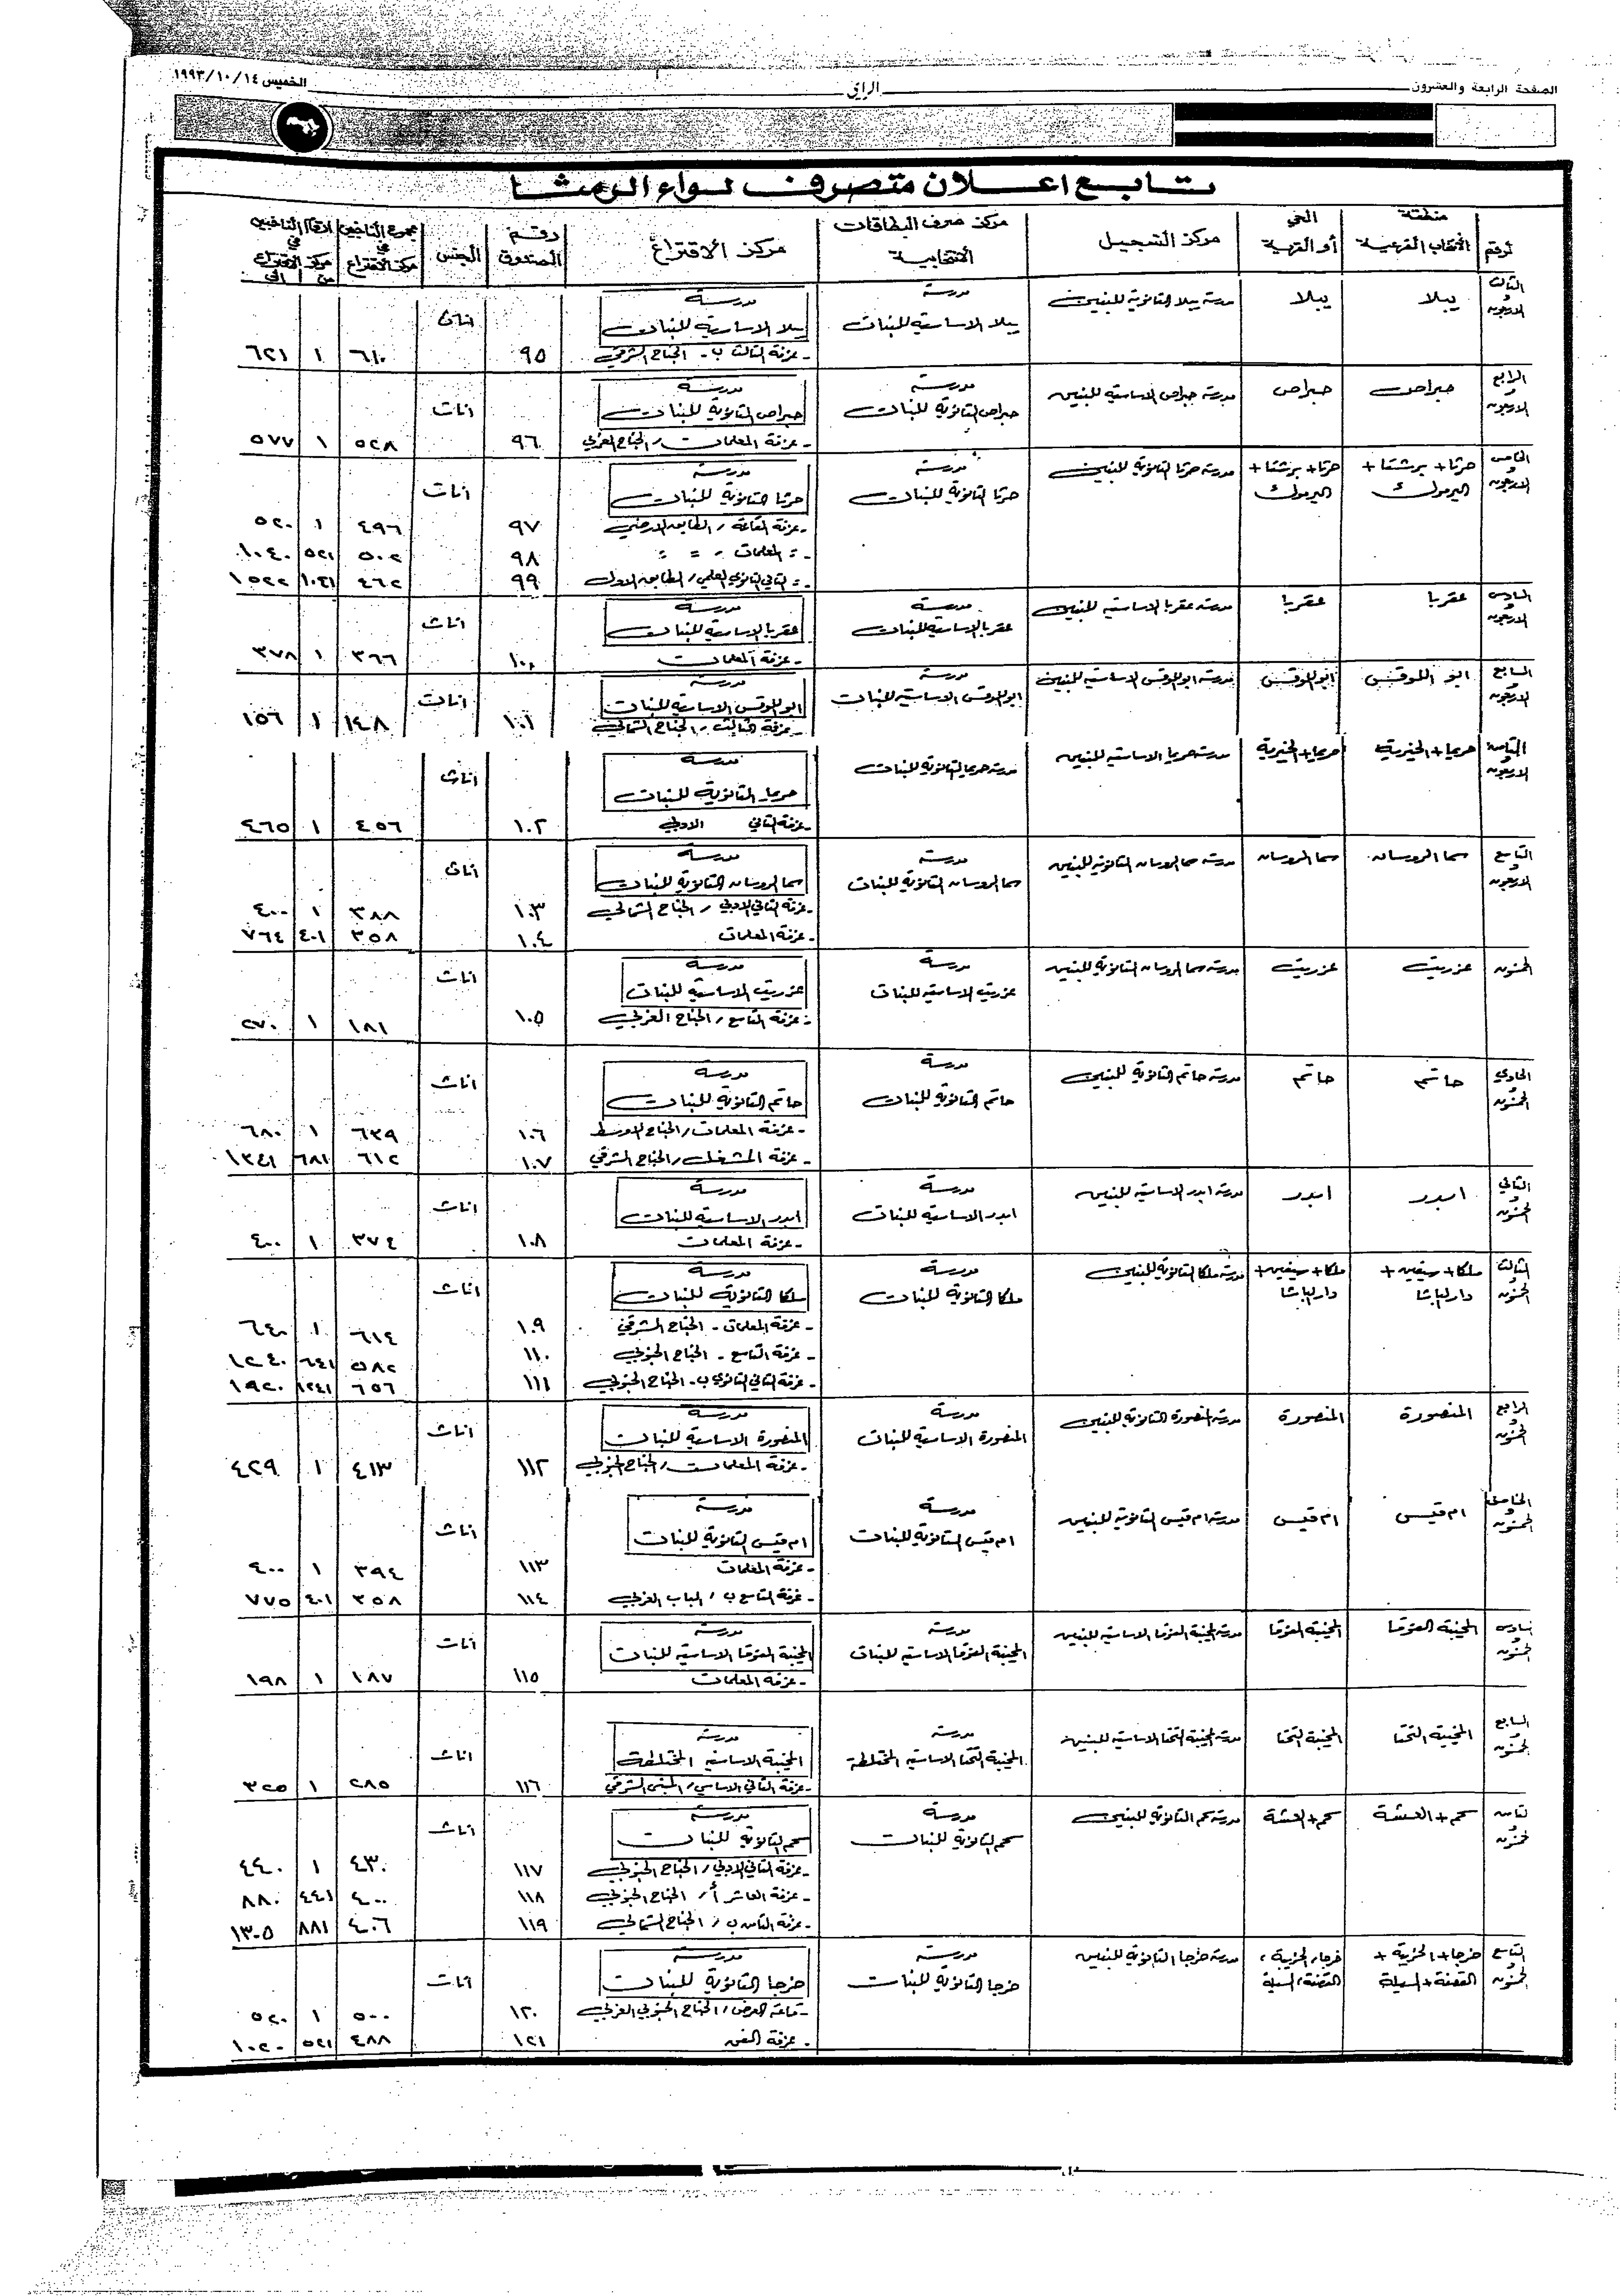 الصفحة الرابعة والعشرون
الراي
الخميس ١٩٩٣/١٠/١٤
تابع اعلان متصرف لواء الرمثا
الرقم
منطقة الانتخاب الفرعية
الحي أو القرية
مركز التسجيل
مركز صرف البطاقات الانتخابية
مركز الاقتراع
رقم الصندوق
الجنس
مجموع الناخبين في مركز الاقتراع
في مركز الاقتراع
من الى
الثالث و الاربعون يبلا يبلا مدرسة يبلا الثانوية للبنين مدرسة يبلا الاساسية للبنات مدرسة يبلا الاساسية للبنات اناث
- غرفة الثالث ب - الجناح الشرقي ٩٥ ٦١٠ ١ ٦٢١
الرابع و الاربعون حبراص حبراص مدرسة حبراص الاساسية للبنين مدرسة حبراص الثانوية للبنات مدرسة حبراص الثانوية للبنات اناث
- غرفة المعلمات / الجناح الغربي ٩٦ ٥٢٨ ١ ٥٧٧
الخامس و الاربعون حرثا + برشتا + اليرموك حرثا + برشتا + اليرموك مدرسة حرثا الثانوية للبنين مدرسة حرثا الثانوية للبنات مدرسة حرثا الثانوية للبنات اناث
- غرفة القاعة / الطابق الارضي ٩٧ ٤٩٦ ١ ٥٢٠
- = المعلمات / = = ٩٨ ٥٠٢ ٥٢١ ١٠٤٠
- = الثاني الثانوي العلمي / الطابق الاول ٩٩ ٤٦٢ ١٠٤١ ١٥٢٢
السادس و الاربعون عقربا عقربا مدرسة عقربا الاساسية للبنين مدرسة عقربا الاساسية للبنات مدرسة عقربا الاساسية للبنات اناث
- غرفة المعلمات ١٠٠ ٣٦٦ ١ ٣٧٨
السابع و الاربعون ابو اللوقس ابو اللوقس مدرسة ابو اللوقس الاساسية للبنين مدرسة ابو اللوقس الاساسية للبنات مدرسة ابو اللوقس الاساسية للبنات اناث
- غرفة الثالث / الجناح الشمالي ١٠١ ١٤٨ ١ ١٥٦
الثامن و الاربعون حريما + الخيرية حريما + الخيرية مدرسة حريما الاساسية للبنين مدرسة حريما الثانوية للبنات مدرسة حريما الثانوية للبنات اناث
- غرفة الثاني الادبي ١٠٢ ٤٥٦ ١ ٤٦٥
التاسع و الاربعون سما الروسان سما الروسان مدرسة سما الروسان الثانوية للبنين مدرسة سما الروسان الثانوية للبنات مدرسة سما الروسان الثانوية للبنات اناث
- غرفة الثاني الادبي / الجناح الشمالي ١٠٣ ٣٨٨ ١ ٤٠٠
- غرفة المعلمات ١٠٤ ٣٥٨ ٤٠١ ٧٦٤
الخمسون عزريت عزريت مدرسة سما الروسان الثانوية للبنين مدرسة عزريت الاساسية للبنات مدرسة عزريت الاساسية للبنات اناث
- غرفة التاسع / الجناح الغربي ١٠٥ ١٨١ ١ ٢٧٠
الحادي و الخمسون حاتم حاتم مدرسة حاتم الثانوية للبنين مدرسة حاتم الثانوية للبنات مدرسة حاتم الثانوية للبنات اناث
- غرفة المعلمات / الجناح الاوسط ١٠٦ ٦٣٩ ١ ٦٨٠
- غرفة المشغل / الجناح الشرقي ١٠٧ ٦١٢ ٦٨١ ١٣٤١
الثاني و الخمسون ابدر ابدر مدرسة ابدر الاساسية للبنين مدرسة ابدر الاساسية للبنات مدرسة ابدر الاساسية للبنات اناث
- غرفة المعلمات ١٠٨ ٣٧٤ ١ ٤٠٠
الثالث و الخمسون ملكا + سيفين + دار الباشا ملكا + سيفين + دار الباشا مدرسة ملكا الثانوية للبنين مدرسة ملكا الثانوية للبنات مدرسة ملكا الثانوية للبنات اناث
- غرفة المعلمات - الجناح الشرقي ١٠٩ ٦١٤ ١ ٦٤٠
- غرفة التاسع - الجناح الجنوبي ١١٠ ٥٨٢ ٦٤١ ١٢٤٠
- غرفة الثاني الثانوي ب - الجناح الجنوبي ١١١ ٦٥٦ ١٢٤١ ١٩٢٠
الرابع و الخمسون المنصورة المنصورة مدرسة المنصورة الثانوية للبنين مدرسة المنصورة الاساسية للبنات مدرسة المنصورة الاساسية للبنات اناث
- غرفة المعلمات / الجناح الجنوبي ١١٢ ٤١٣ ١ ٤٢٩
الخامس و الخمسون ام قيس ام قيس مدرسة ام قيس الثانوية للبنين مدرسة ام قيس الثانوية للبنات مدرسة ام قيس الثانوية للبنات اناث
- غرفة المعلمات ١١٣ ٣٩٤ ١ ٤٠٠
- غرفة التاسع ب / الباب الغربي ١١٤ ٣٥٨ ٤٠١ ٧٧٥
السادس و الخمسون المخيبة الفوقا المخيبة الفوقا مدرسة المخيبة الفوقا الاساسية للبنين مدرسة المخيبة الفوقا الاساسية للبنات مدرسة المخيبة الفوقا الاساسية للبنات اناث
- غرفة المعلمات ١١٥ ١٨٧ ١ ١٩٨
السابع و الخمسون المخيبة التحتا المخيبة التحتا مدرسة المخيبة التحتا الاساسية للبنين مدرسة المخيبة التحتا الاساسية المختلطة مدرسة المخيبة الاساسية المختلطة اناث
- غرفة الثاني الاساسي / المبنى الشرقي ١١٦ ٢٨٥ ١ ٣٢٥
الثامن و الخمسون سحم + العشة سحم + العشة مدرسة سحم الثانوية للبنين مدرسة سحم الثانوية للبنات مدرسة سحم الثانوية للبنات اناث
- غرفة الثاني الادبي / الجناح الجنوبي ١١٧ ٤٣٠ ١ ٤٤٠
- غرفة العاشر أ / الجناح الجنوبي ١١٨ ٤٠٠ ٤٤١ ٨٨٠
- غرفة الثامن ب / الجناح الشمالي ١١٩ ٤٠٦ ٨٨١ ١٣٠٥
التاسع و الخمسون خرجا + الخريبة + القصفة + السيلة خرجا، الخريبة، القصفة، السيلة مدرسة خرجا الثانوية للبنين مدرسة خرجا الثانوية للبنات مدرسة خرجا الثانوية للبنات اناث
- قاعة العرض / الجناح الجنوبي الغربي ١٢٠ ٥٠٠ ١ ٥٢٠
- غرفة الفن ١٢١ ٤٨٨ ٥٢١ ١٠٢٠